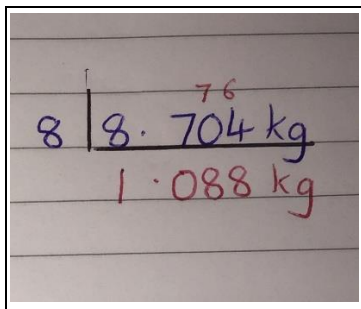 7 6
8 8. 704 kg
1 .088 kg